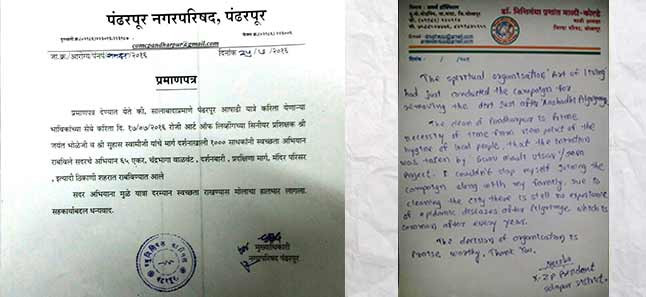 पंढरपूर नगरपरिषद, पंढरपूर
comcpandharpur@gmail.com
दिनांक २५/७/२०१६
प्रमाणपत्र
प्रमाणपत्र देण्यात येते की, सालाबादाप्रमाणे पंढरपूर आषाढी यात्रे करिता येणाऱ्या
भाविकांच्या सेवे करिता दि. १७/०७/२०१६ रोजी आर्ट ऑफ लिव्हींगच्या सिनीयर प्रशिक्षक श्री
जयंत भोळेजी व श्री सुहास स्वामीजी यांचे मार्ग दर्शनाखाली १००० साधकांनी स्वच्छता अभियान
राबविले सदरचे अभियान ६५ एकर, चंद्रभागा वाळवंट, दर्शनबारी, प्रदक्षिणा मार्ग, मंदिर परिसर
, इत्यादी ठिकाणी शहरात राबविण्यात आले
सदर अभियाना मुळे यात्रा दरम्यान स्वच्छता राखण्यास मोलाचा हातभार लागला.
सहकार्याबद्दल धन्यवाद.
मुख्याधिकारी
नगरपरिषद पंढरपूर
डॉ. निशिगंधा प्रशांत माळी-कोल्हे
माजी अध्यक्षा
जिल्हा परिषद, सोलापूर
The spiritual organisation 'Art of living'
had just conducted the campaign for
removing the dirt just after Aashadhi Pilgrimage.
The clean of Pandharpur is prime
necessity of time from view point of the
hygiene of local people. That the
was taken by
Project. I couldn't stop myself joining the
campaign along with my family. Due to
cleaning the city there is still no experience
of epidemic diseases after Pilgrimage which is
common after every year.
The decision of organisation is
Praise worthy. Thank You.
X-ZP President
Solapur District.